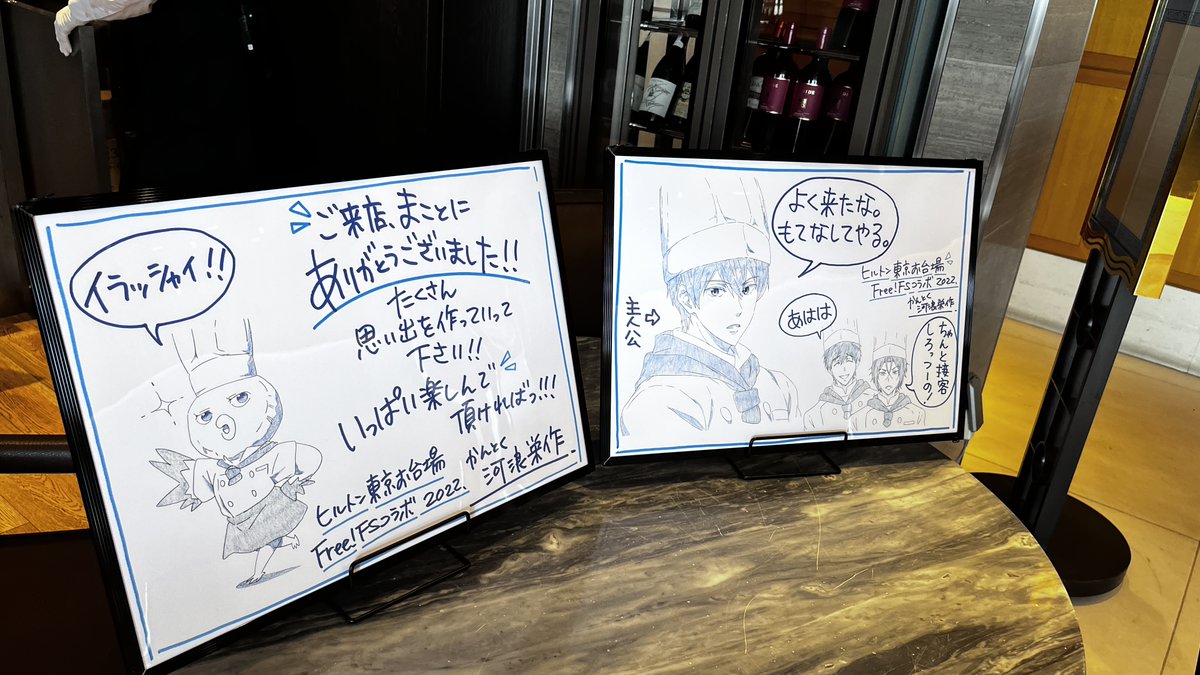 イラッシャイ!!
ご来店、まことに
ありがとうございました!!
たくさん
思い出を作っていって
下さい!!
いっぱい楽しんで
頂ければっ!!!
ヒルトン東京お台場
Free!FSコラボ 2022.
かんとく
河浪栄作.
よく来たな。
もてなしてやる。
ヒルトン東京お台場
Free!FSコラボ 2022.
かんとく
河浪栄作.
主人公⇨
あはは
ちゃんと接客
しろっつーの!